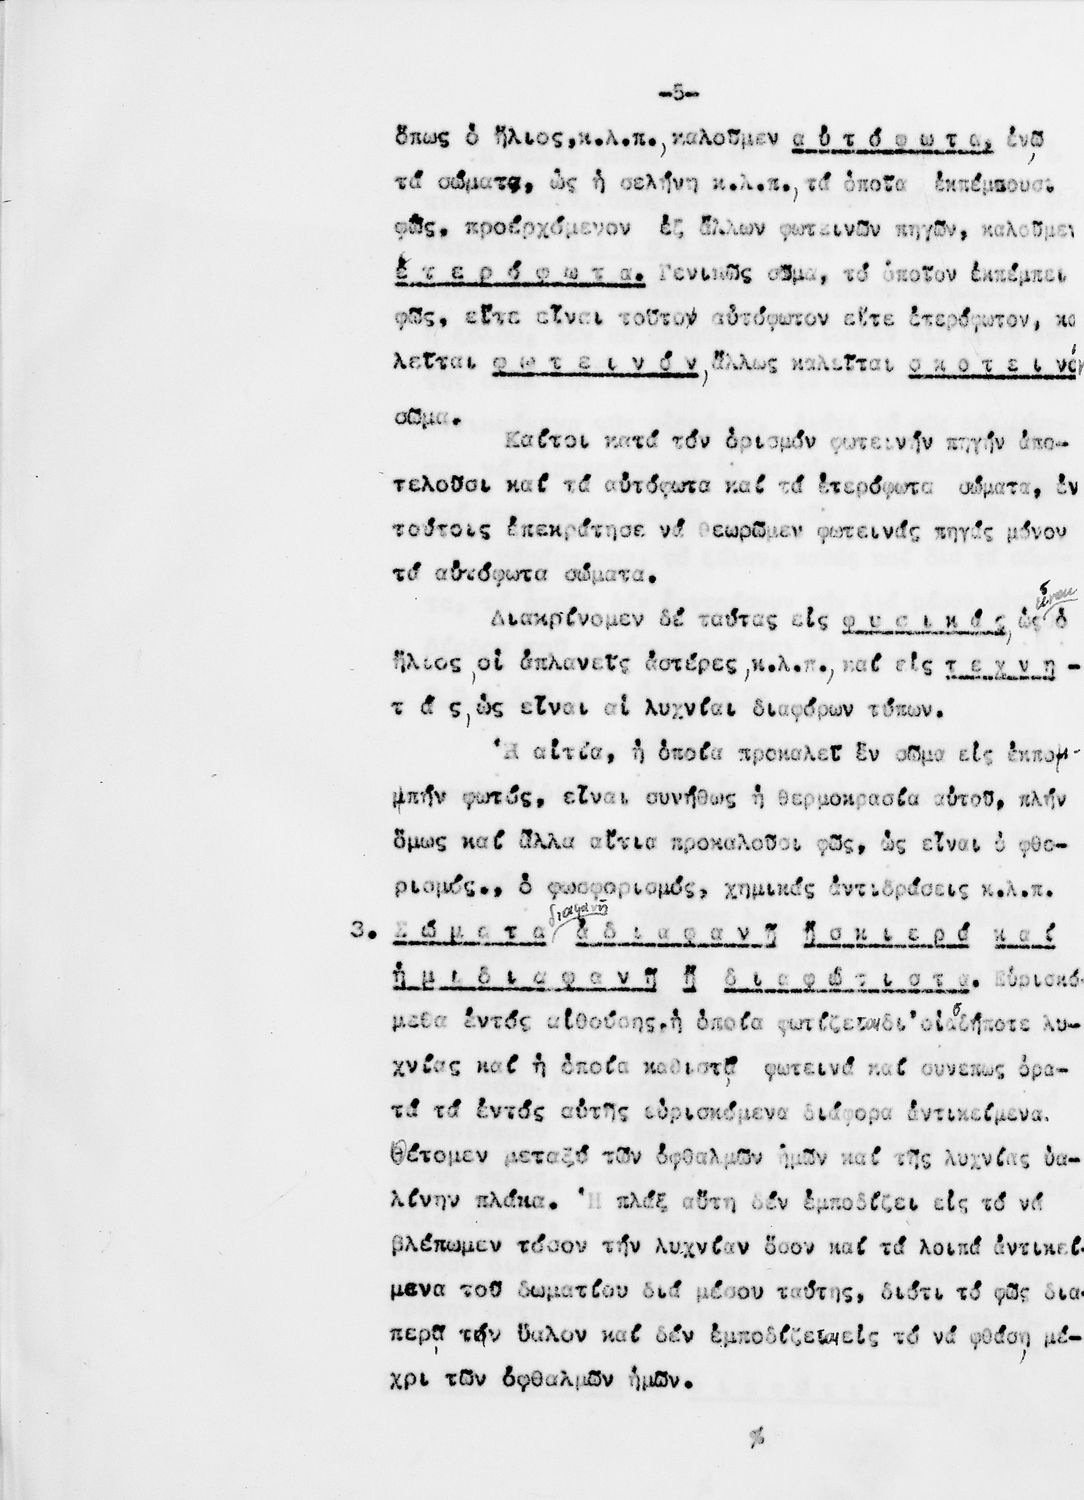 -5-
ὅπως ὁ ἥλιος,κ.λ.π., καλοῦμεν α ὐ τ ό φ ω τ α, ἐνῷ
τά σώματα, ὡς ἡ σελήνη κ.λ.π., τά ὁποῖα ἐκπέμπουσι
φῶς, προέρχόμενον ἐξ ἄλλων φωτεινῶν πηγῶν, καλοῦμεν
ἑ τ ε ρ ό φ ω τ α. Γενικῶς σῶμα, τό ὁποῖον ἐκπέμπει
φῶς, εἴτε εἶναι τοῦτον αὐτόφωτον εἴτε ἑτερόφωτον, κα
λεῖται φ ω τ ε ι ν ό ν, ἄλλως καλεῖται σ κ ο τ ε ι νόν
σῶμα.
Καίτοι κατά τόν ὁρισμόν φωτεινήν πηγήν ἀπο-
τελοῦσι καί τά αὐτόφωτα καί τά ἑτερόφωτα σώματα, ἐν
τούτοις ἐπεκράτησε νά θεωρῶμεν φωτεινάς πηγάς μόνον
τά αὐτόφωτα σώματα.
Διακρίνομεν δέ ταύτας εἰς φ υ σ ι κ ά ς, ὡς εἶναι ὁ
ἥλιος, οἱ ἀπλανεῖς ἀστέρες, κ.λ.π., καί εἰς τ ε χ ν η -
τ ά ς, ὡς εἶναι αἱ λυχνίαι διαφόρων τύπων.
Ἡ αἰτία, ἡ ὁποία προκαλεῖ ἕν σῶμα εἰς ἐκπομ-
μπήν φωτός, εἶναι συνήθως ἡ θερμοκρασία αὐτοῦ, πλήν
ὅμως καί ἄλλα αἴτια προκαλοῦσι φῶς, ὡς εἶναι ὁ φθο-
ρισμός., ὁ φωσφορισμός, χημικάς ἀντιδράσεις κ.λ.π.
3. Σ ώ μ α τ α διαφανῆ ἀ δ ι α φ α ν ῆ ἤ σ κ ι ε ρ ά κ α ί
ἡ μ ι δ ι α φ α ν ῆ ἤ δ ι α φ ώ τ ι σ τ α. Εὑρισκό-
μεθα ἐντός αἰθούσης, ἡ ὁποία φωτίζεται δι' οἱασδήποτε λυ-
χνίας καί ἡ ὁποία καθιστᾷ φωτεινά καί συνεπως ὁρα-
τά τά ἐντός αὐτῆς εὑρισκόμενα διάφορα ἀντικείμενα.
Θέτομεν μεταξύ τῶν ὀφθαλμῶν ἡμῶν καί τῆς λυχνίας ὑα-
λίνην πλάκα. Ἡ πλάξ αὕτη δέν ἐμποδίζει εἰς τό νά
βλέπωμεν τόσον τήν λυχνίαν ὅσον καί τά λοιπά ἀντικεί-
μενα τοῦ δωματίου διά μέσου ταύτης, διότι τό φῶς δια-
περᾷ τήν ὕαλον καί δέν ἐμποδίζεται εἰς τό νά φθάσῃ μέ-
χρι τῶν ὀφθαλμῶν ἡμῶν.